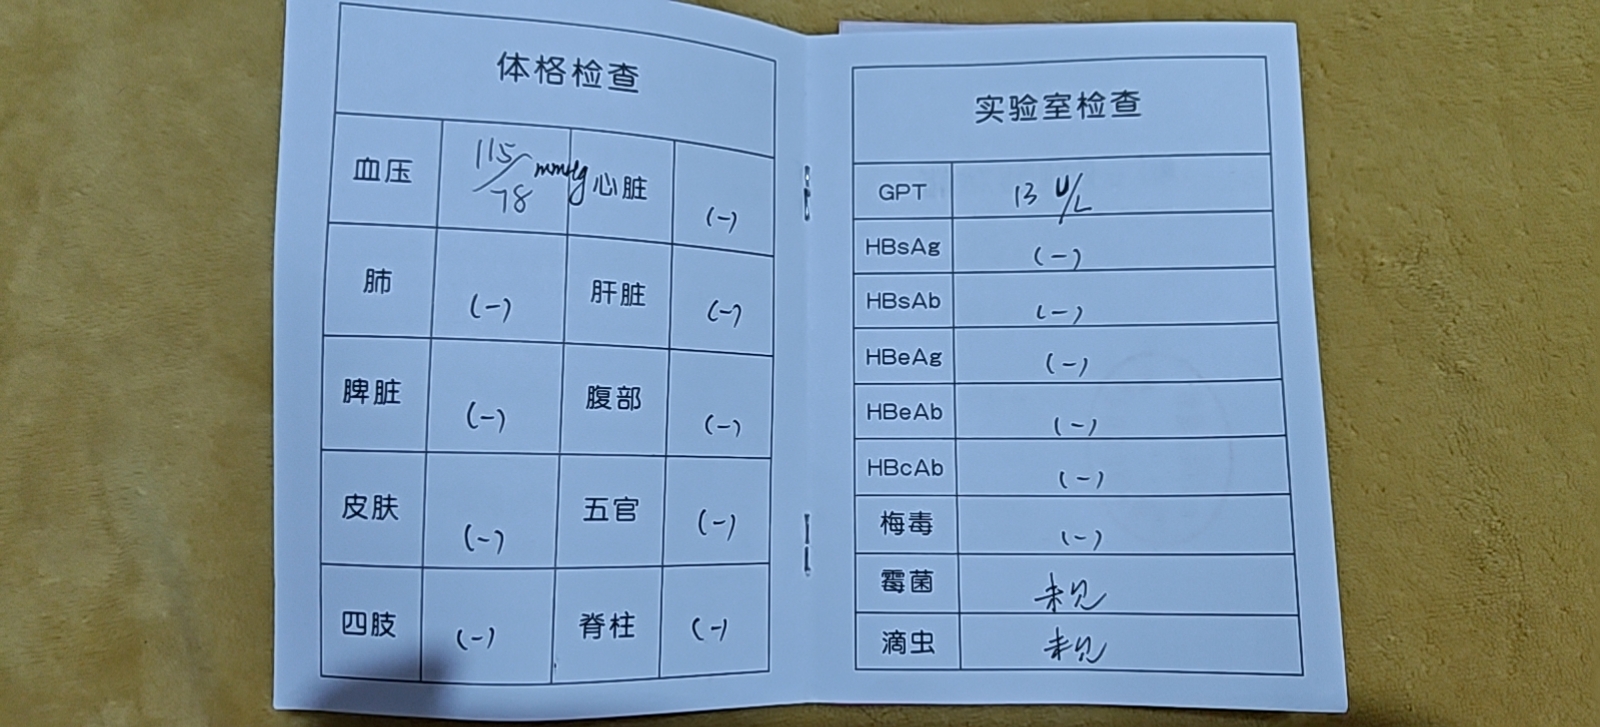 体格检查
血压 115/78 mmHg 心脏 (-)
肺 (-) 肝脏 (-)
脾脏 (-) 腹部 (-)
皮肤 (-) 五官 (-)
四肢 (-) 脊柱 (-)
实验室检查
GPT 13 U/L
HBsAg (-)
HBsAb (-)
HBeAg (-)
HBeAb (-)
HBcAb (-)
梅毒 (-)
霉菌 未见
滴虫 未见